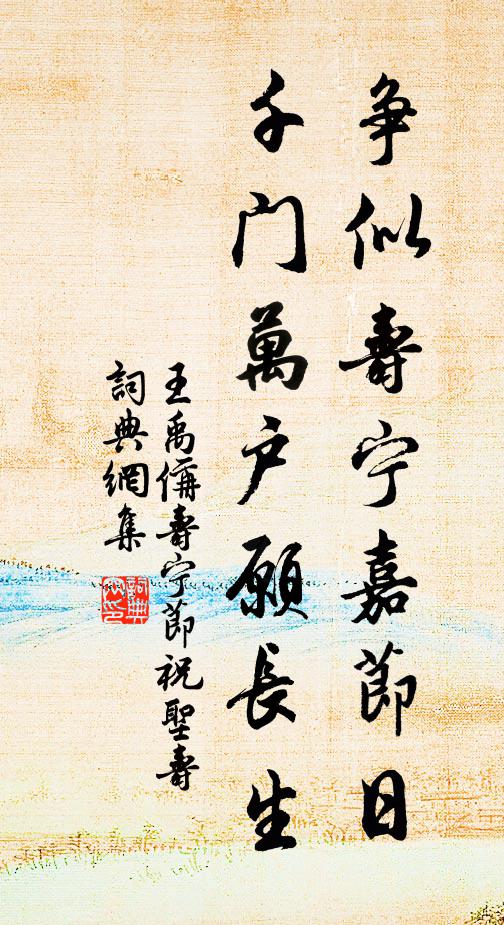 争似壽宁嘉節日
千门萬户願長生
王禹偁壽宁節祝聖壽
詞典網集